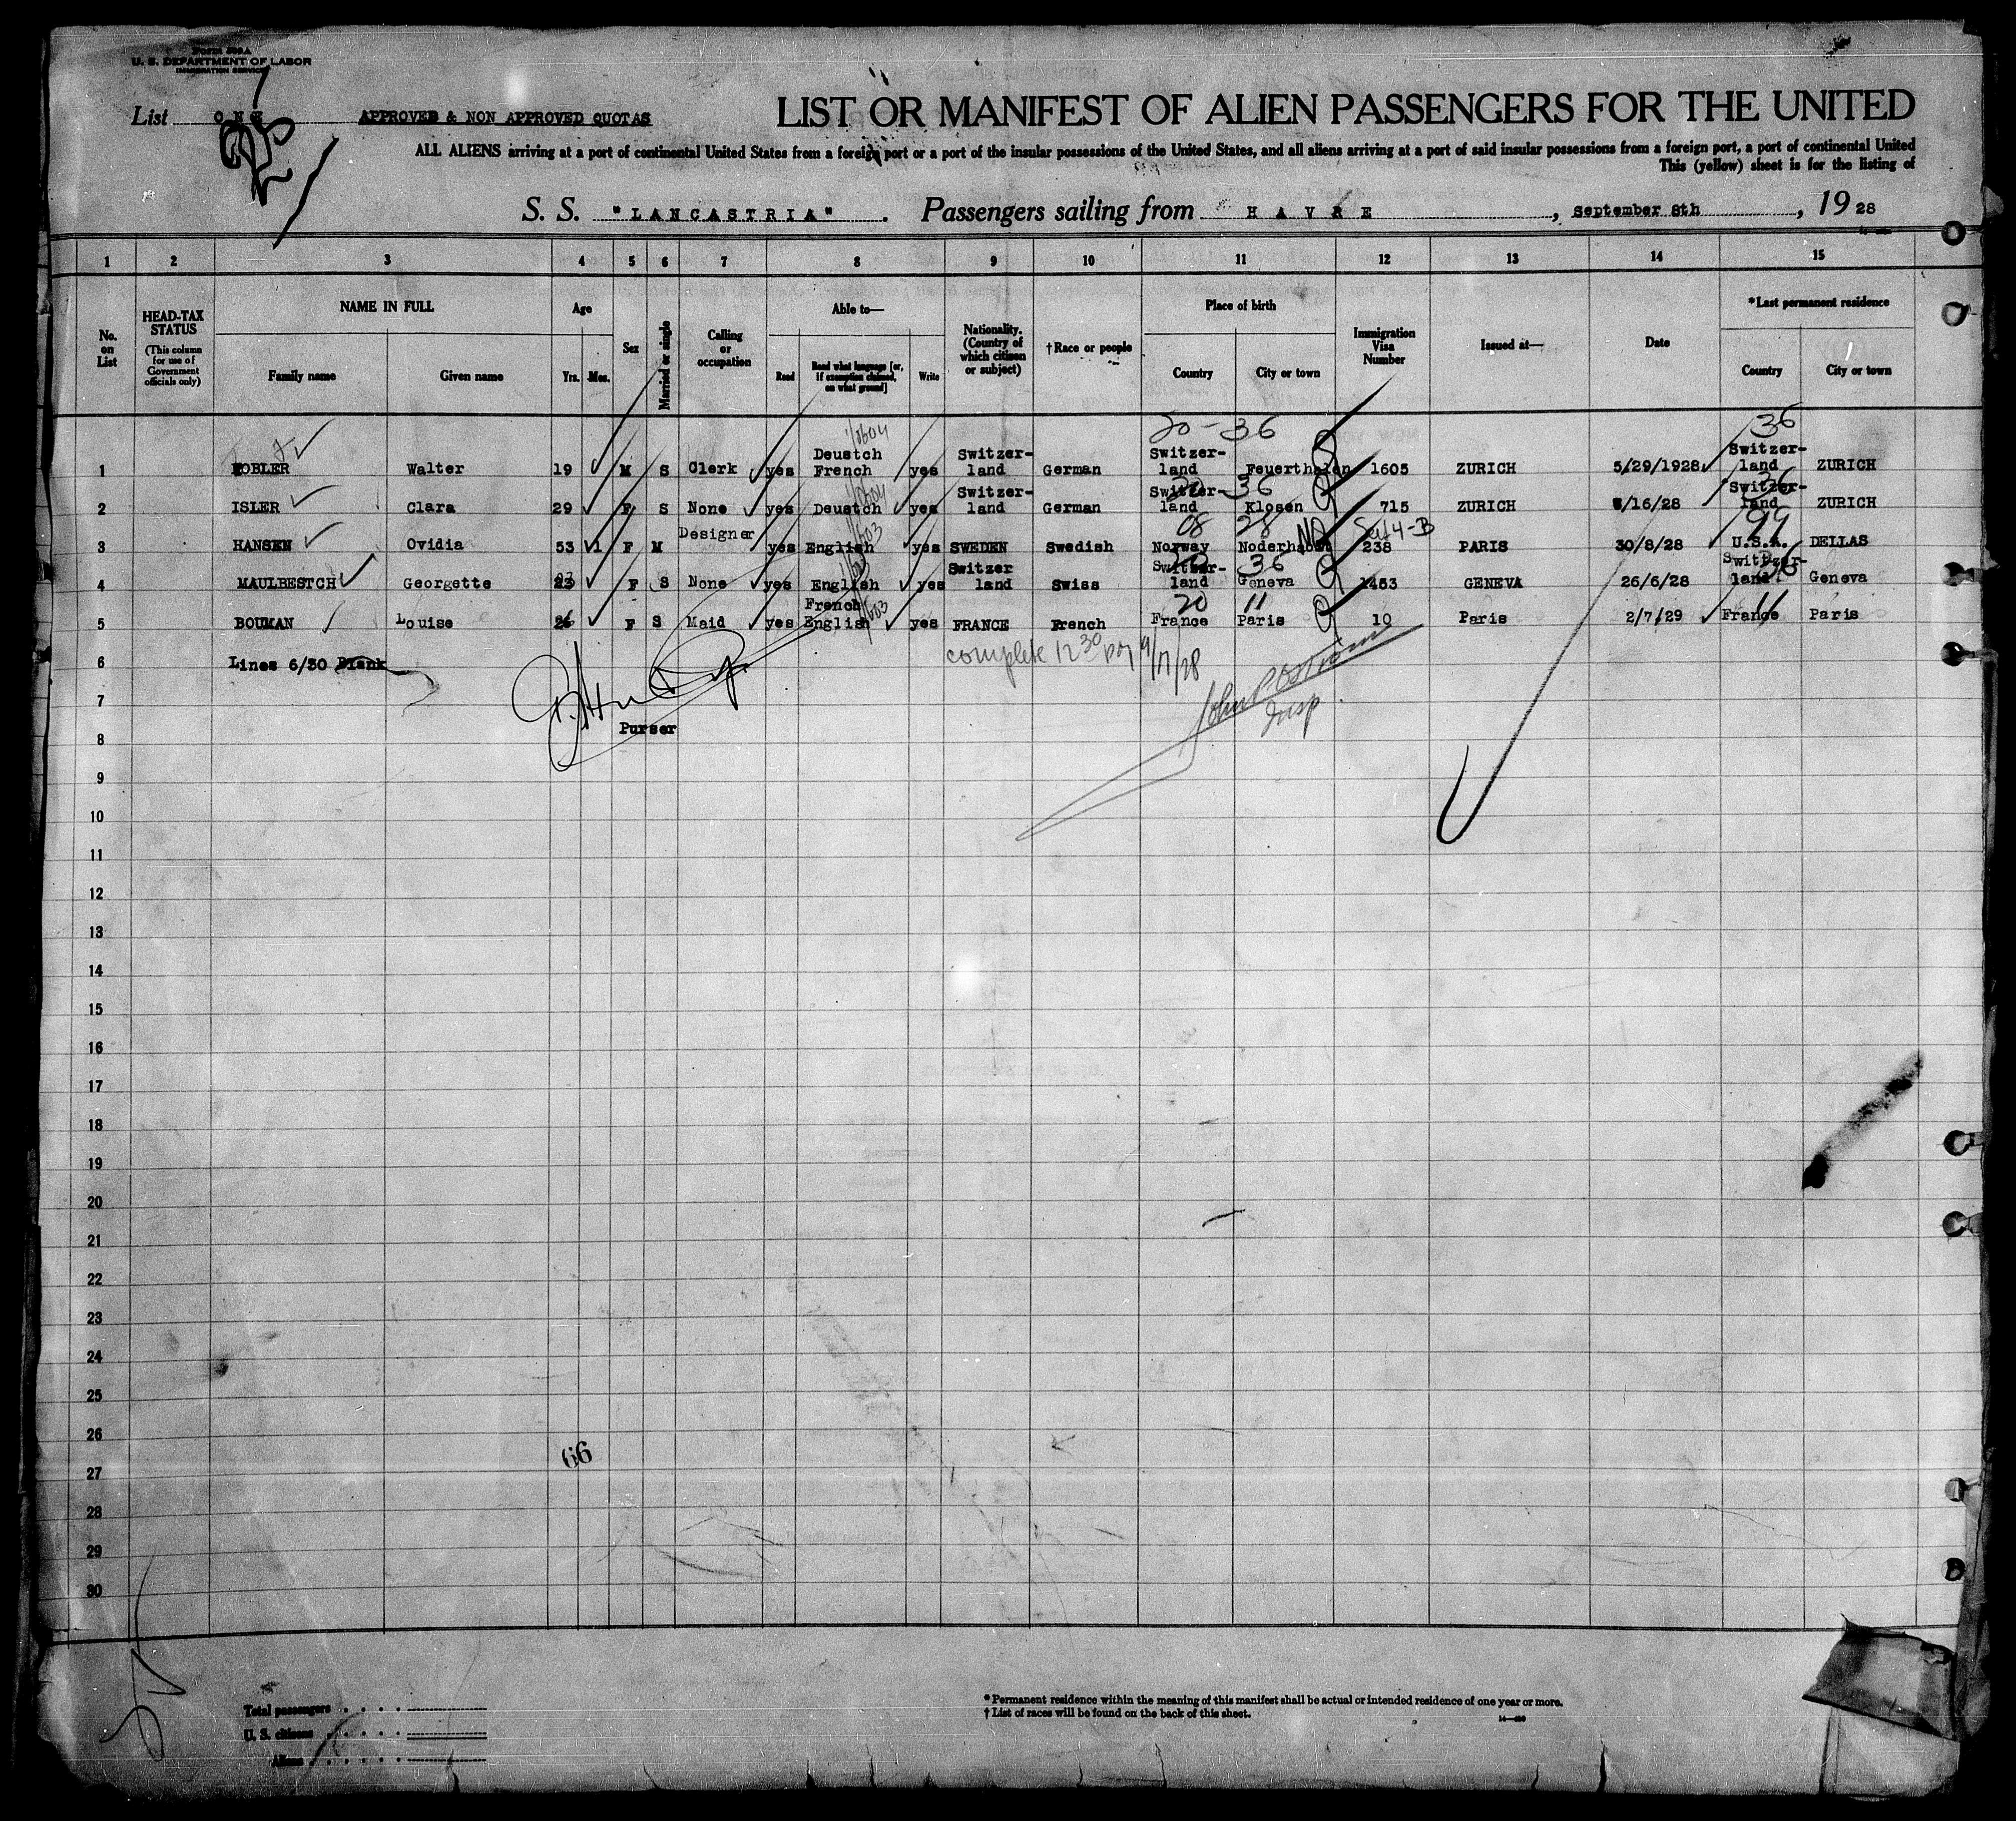 Form 500A
U. S. DEPARTMENT OF LABOR
IMMIGRATION SERVICE
List ONE APPROVED & NON APPROVED QUOTAS
LIST OR MANIFEST OF ALIEN PASSENGERS FOR THE UNITED
ALL ALIENS arriving at a port of continental United States from a foreign port or a port of the insular possessions of the United States, and all aliens arriving at a port of said insular possessions from a foreign port, a port of continental United
This (yellow) sheet is for the listing of
S. S. "LANCASTRIA". Passengers sailing from HAVRE, September 8th, 1928
1 2 3 4 5 6 7 8 9 10 11 12 13 14 15
No. on List
HEAD-TAX STATUS (This column for use of Government officials only)
NAME IN FULL Family name Given name
Age Yrs. Mos.
Sex
Married or single
Calling or occupation
Able to— Read Read what language [or, if exemption claimed, on what ground] Write
Nationality. (Country of which citizen or subject)
†Race or people
Place of birth Country City or town
Immigration Visa Number
Issued at—
Date
*Last permanent residence Country City or town
20-36 36
1 FOBLER Walter 19 M S Clerk yes Deustch French yes Switzer-land German Switzer-land Feuerthalen 1605 ZURICH 5/29/1928 Switzer-land ZURICH
20 36 36
2 ISLER Clara 29 F S None yes Deustch yes Switzer-land German Switzer-land Klosen 715 ZURICH /16/28 Switzer-land ZURICH
08 28 NQ Sec/4-B 99
3 HANSEN Ovidia 53 1 F M Designer yes English yes SWEDEN Swedish Norway Noderhabst 238 PARIS 30/8/28 U.S.A. DELLAS
20 36 36
4 MAULBESTCH Georgette 23 F S None yes English yes Switzer land Swiss Switzer-land Geneva 1453 GENEVA 26/6/28 Switzer-land Geneva
20 11 11
5 BOUMAN Louise 26 F S Maid yes French English yes FRANCE French France Paris 10 Paris 2/7/29 France Paris
6 Lines 6/30 Blank
complete 12 30 9/17/28
7
Insp
Purser
8
9
10
11
12
13
14
15
16
17
18
19
20
21
22
23
24
25
26
66
27
28
29
30
Total passengers
U. S. citizens
Aliens
*Permanent residence within the meaning of this manifest shall be actual or intended residence of one year or more.
†List of races will be found on the back of this sheet.